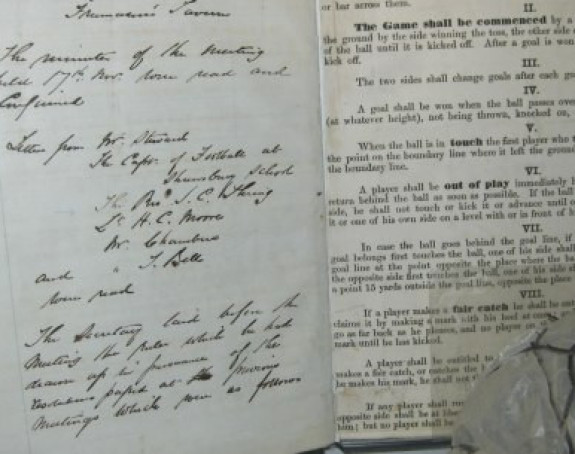 Freemason's Tavern
The minutes of the Meeting
held 17th Nov. were read and
Confirmed
Letters from Mr. Steward
The Capt. of Football at
Shrewsbury School
The Revd. J. C. Thring
Lt. H. C. Moore
Mr. Chambers
and " T. Bell
were read
The Secretary laid before the
Meeting the Rules which he had
drawn up in pursuance of the
resolutions passed at the previous
Meetings which were as follows
or bar across them.
II.
The Game shall be commenced by a
the ground by the side winning the toss, the other side
of the ball until it is kicked off. After a goal is won
kick off.
III.
The two sides shall change goals after each go
IV.
A goal shall be won when the ball passes ove
(at whatever height), not being thrown, knocked on,
V.
When the ball is in touch the first player who t
the point on the boundary line where it left the ground
the boundary line.
VI.
A player shall be out of play immediately h
return behind the ball as soon as possible. If the ball
side, he shall not touch or kick it or advance until o
it or one of his own side on a level with or in front of h
VII.
In case the ball goes behind the goal line, if
goal belongs first touches the ball, one of his side shall
goal line at the point opposite the place where the ba
the opposite side first touches the ball, one of his side sh
a point 15 yards outside the goal line, opposite the place
VIII.
If a player makes a fair catch he shall be ent
claims it by making a mark with his heel at once
go as far back as he pleases, and no player on
mark until he has kicked.
A player shall be entitled to
makes a fair catch, or catches the b
he makes his mark, he shall not
If any player shall
opposite side shall be at libe
him; but no player shall be